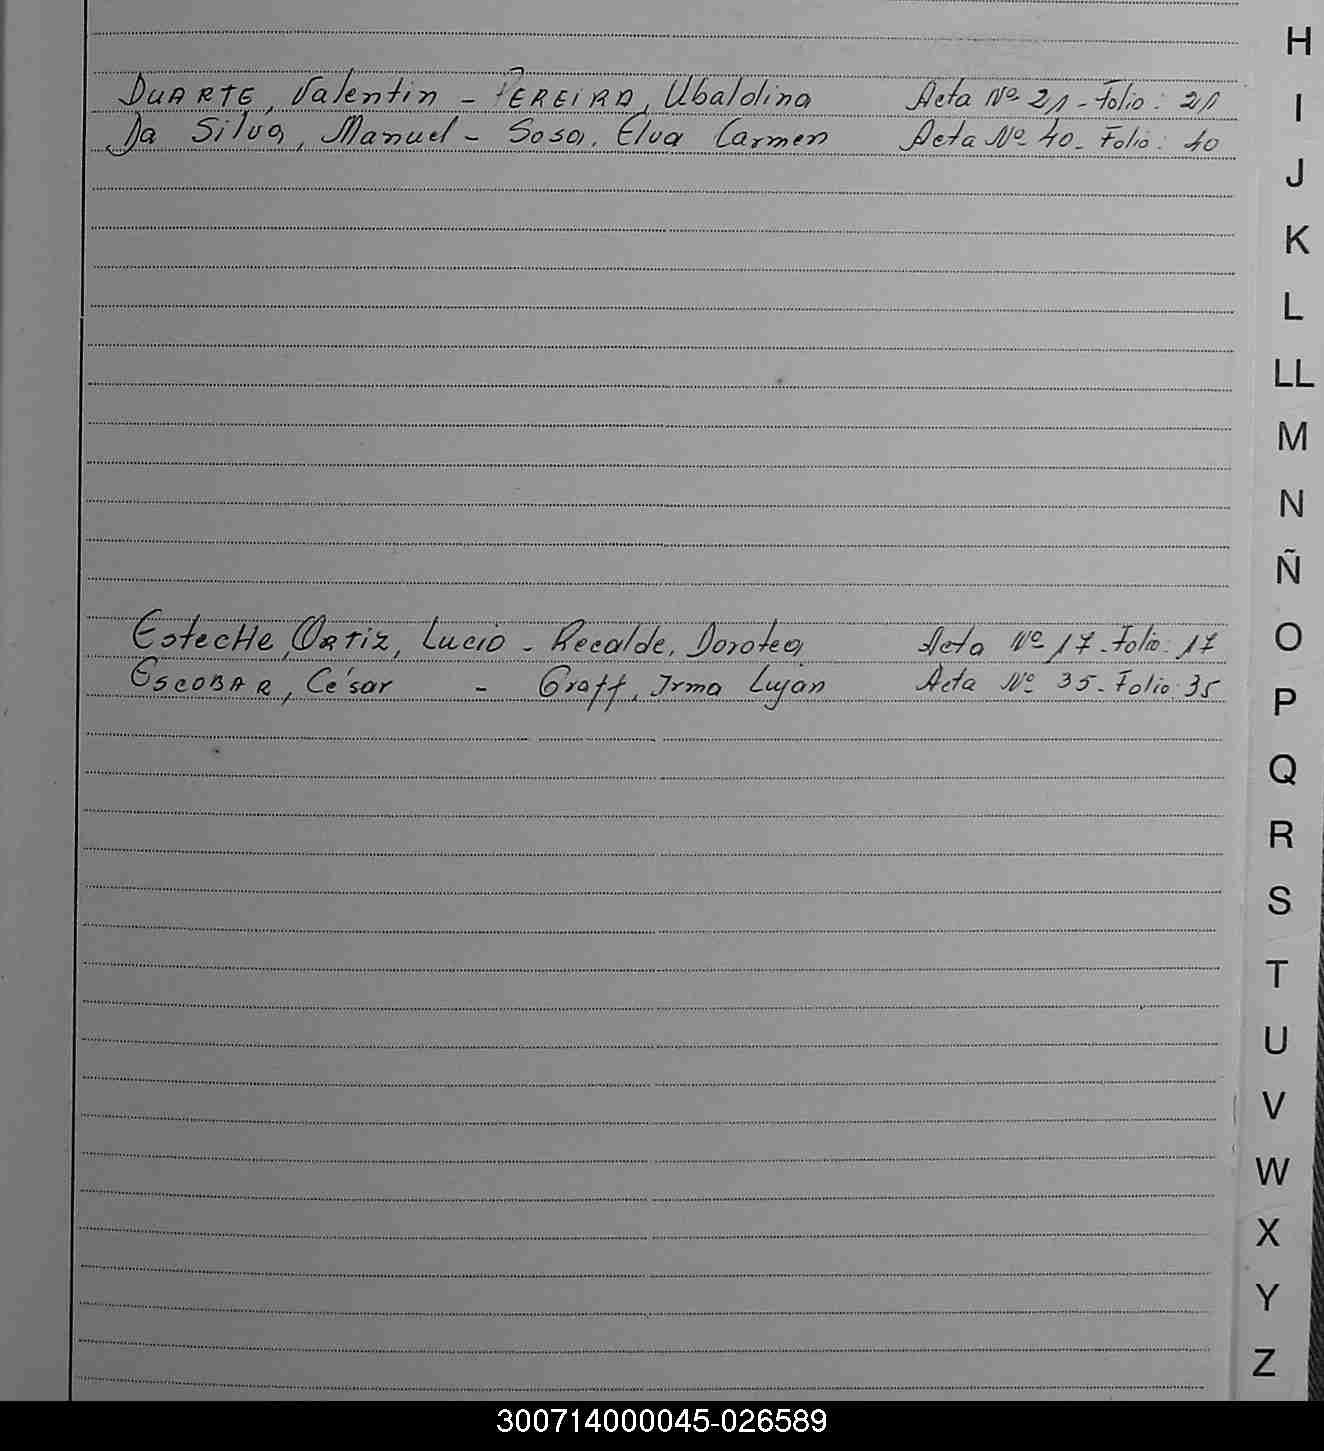 H
DUARTE, Valentin - PEREIRA, Ubaldina Acta Nº 21 - Folio: 21
I
Da Silva, Manuel - Sosa, Elva Carmen Acta Nº 40 - Folio: 40
J
K
L
LL
M
N
Ñ
EstecHe, ORTiz, Lucio - Recalde, Dorotea Acta Nº 17 - Folio: 17
O
ESCOBAR, César - Graff, Irma Luján Acta Nº 35 - Folio: 35
P
Q
R
S
T
U
V
W
X
Y
Z
300714000045-026589